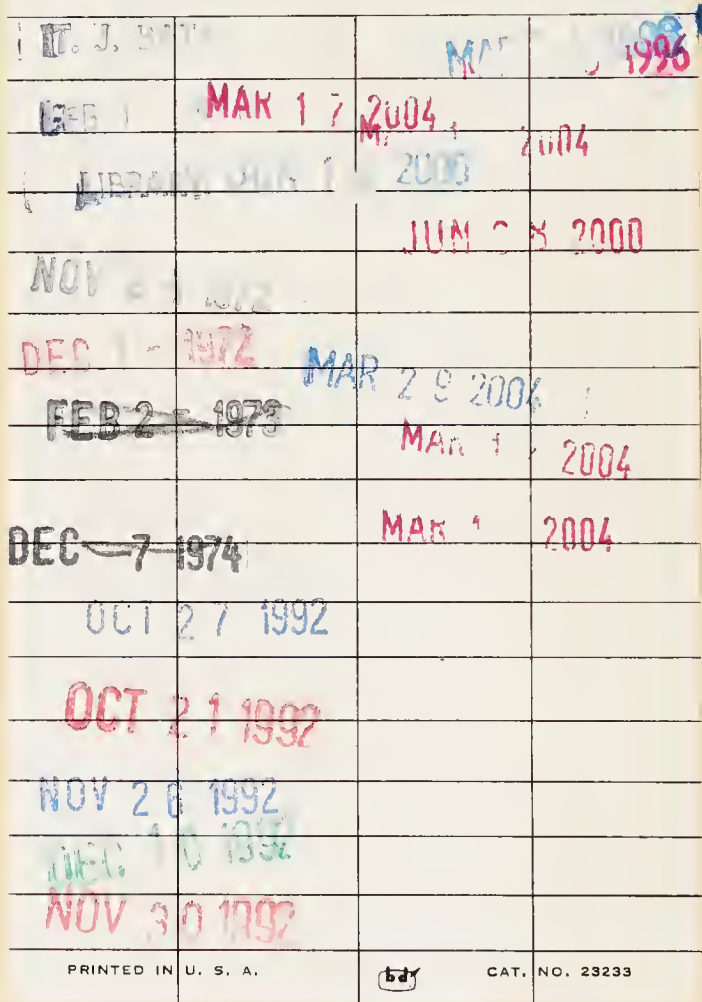 1996
MAR 17 2004
2004
LIBRARY
2000
JUN 8 2000
NOV 1972
DEC 1 - 1972
MAR 29 2004
FEB 2 1973
MAR 1 2004
MAR 1 2004
DEC - 7 1974
OCT 27 1992
OCT 21 1992
NOV 26 1992
DEC 10 1992
NOV 30 1992
PRINTED IN U. S. A.
bd
CAT. NO. 23233